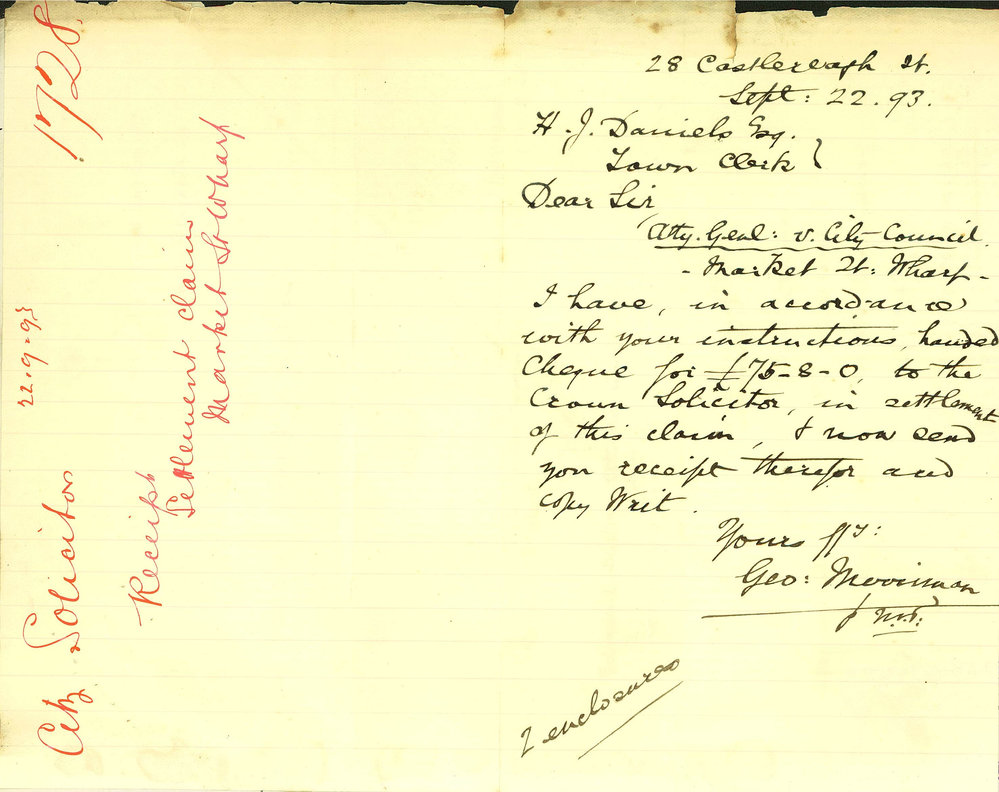 1728.
City Solicitor
22.9.93
Receipt
Settlement claim
Market St Wharf
28 Castlereagh St.
Sept: 22.93.
H. J. Daniels Esq.
Town Clerk }
Dear Sir
Atty. Genl: v. City Council.
- Market St: Wharf -
I have, in accordance
with your instructions, handed
Cheque for £75-8-0, to the
Crown Solicitor, in settlement
of this claim, & now send
you receipt therefor and
copy Writ.
Yours ffy:
Geo: Merriman
2 enclosures